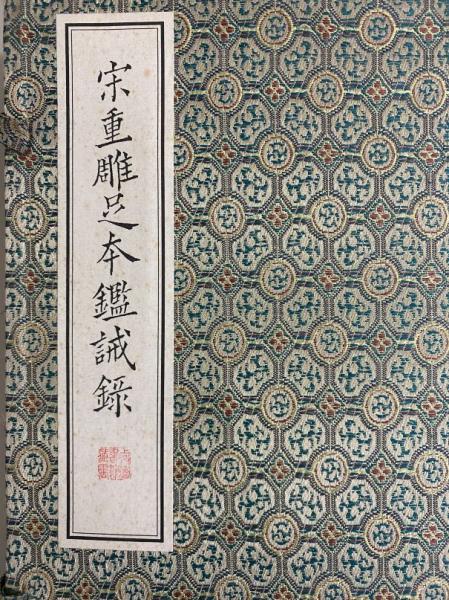 宋重雕足本鑑誡錄